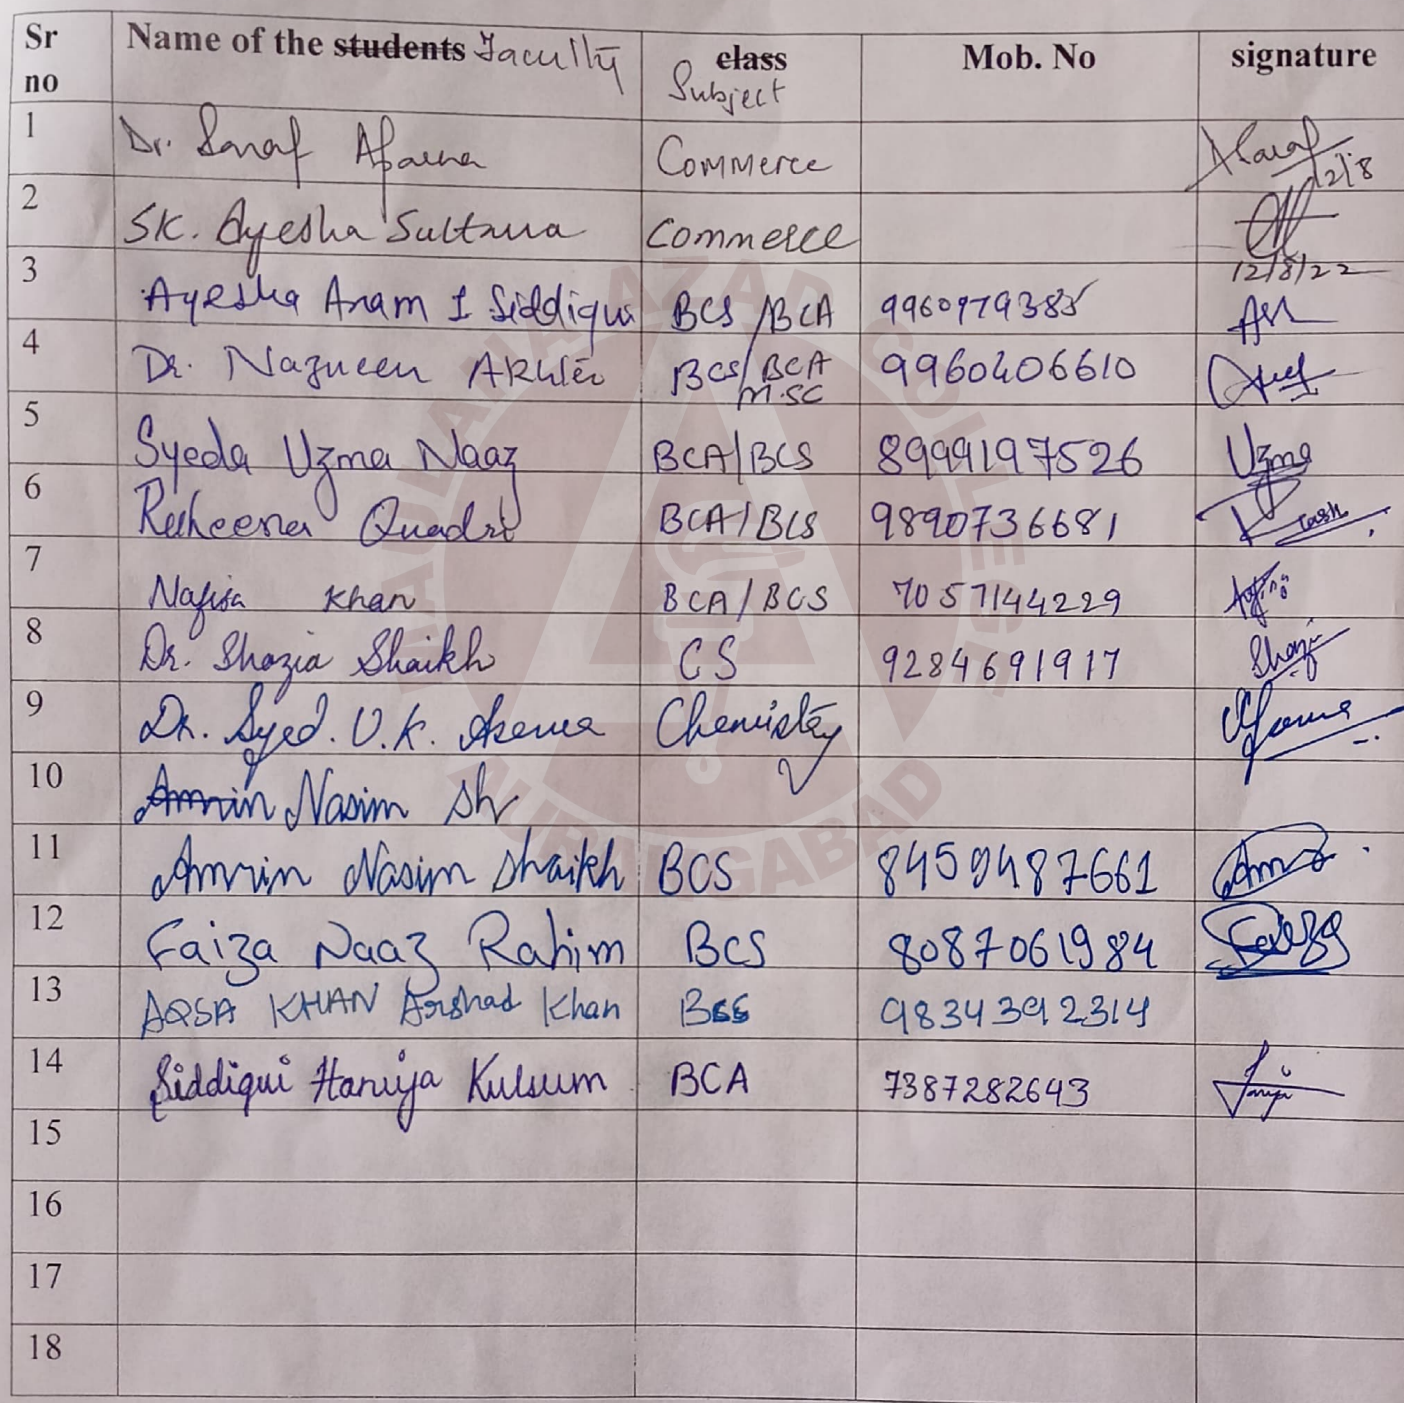 Sr no Name of the students Faculty class Subject Mob. No signature
1 Dr. Saraf Commerce 12/8
2 SK. Ayesha Sultana Commerce 12/8/22
3 Ayesha Anam I Siddiqui BCS/BCA
4 Dr. Nazneen Akhter BCS/BCA M.SC 9960406610
5 Syeda Uzma Naaz BCA/BCS 8999197526 Uzma
6 Raheena Quadri BCA/BCS 9890736681
7 Nafisa Khan BCA/BCS 7057144229
8 Dr. Shazia Shaikh CS 9284691917
9 Dr. Syed. U.K. Chemistry
10 Amrin Nasim Sh
11 Amrin Nasim Shaikh BCS 8459487661
12 Faiza Naaz Rahim BCS 8087061984 Faiza
13 AQSA KHAN Arshad Khan 9834392314
14 Siddiqui Haniya Kulsum BCA 7387282643
15
16
17
18
MAULANA AZAD COLLEGE
AURANGABAD